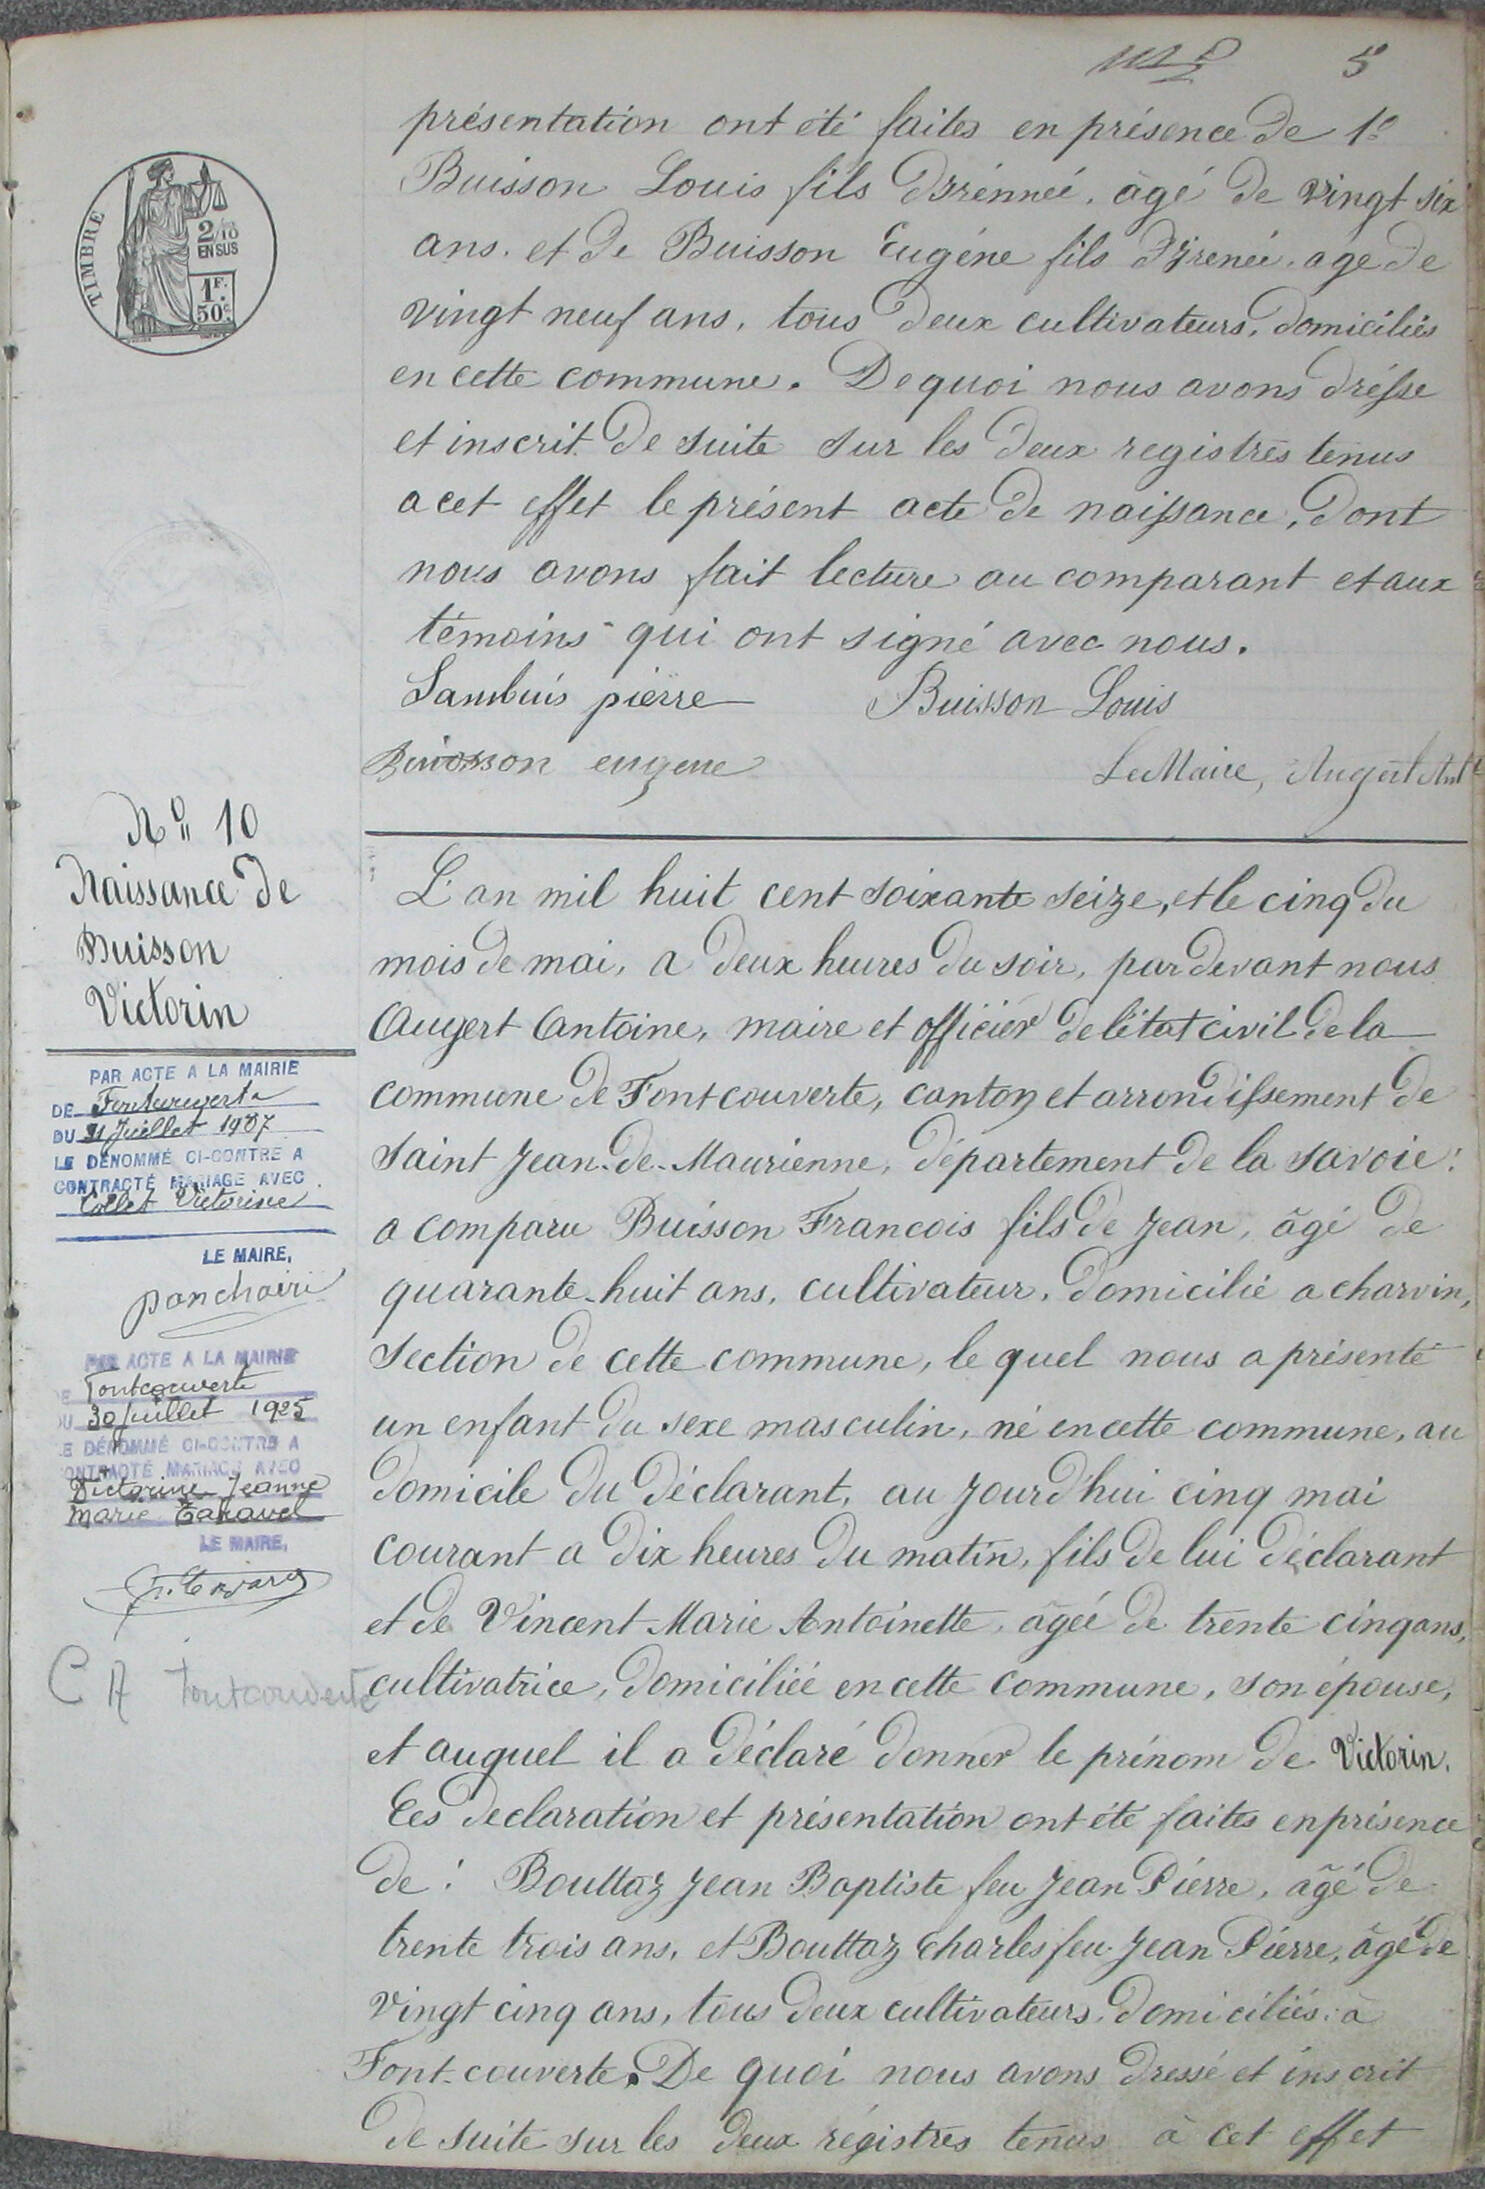 5
présentation ont été faites en présence de 1°
Buisson Louis fils d'Irénneé, âgé de vingt six
ans. et de Buisson Eugéne fils d'Ireneé. age de
vingt neuf ans, tous deux cultivateurs, domiciliés
en cette commune. De quoi nous avons drésse
et inscrit de suite sur les deux registres tenus
a cet effet le présent acte de naissance, dont
nous avons fait lecture au comparant et aux
témoins qui ont signé avec nous.
Sambuis pierre Buisson Louis
Buisson eugene
Le Maire, Augert Ant
TIMBRE
2/10
EN SUS
1F.
50c.
No 10
Naissance de
Buisson
Victorin
PAR ACTE A LA MAIRIE
DE Fontcouverte
DU 31 Juillet 1907
LE DÉNOMMÉ CI-CONTRE A
CONTRACTÉ MARIAGE AVEC
Collet Victorine
LE MAIRE,
PAR ACTE A LA MAIRIE
DE Fontcouverte
DU 30 Juillet 1925
LE DÉNOMMÉ CI-CONTRE A
CONTRACTÉ MARIAGE AVEC
Victorine Jeanne
Marie Taravel
LE MAIRE,
C A Fontcouverte
L'an mil huit cent soixante seize, et le cinq du
mois de mai, a deux heures du soir, par devant nous
Augert Antoine, maire et officier de l'état civil de la
commune de Fontcouverte, canton et arrondissement de
Saint Jean-de-Maurienne, département de la savoie:
a comparu Buisson Francois fils de Jean, âgé de
quarante-huit ans, cultivateur, domicilié a charvin,
section de cette commune, le quel nous a présenté
un enfant du sexe masculin, né en cette commune, au
domicile du déclarant, au jourd'hui cinq mai
courant a dix heures du matin, fils de lui déclarant
et de Vincent Marie Antoinette, âgée de trente cinq ans,
cultivatrice, domiciliée en cette commune, son épouse,
et auquel il a déclaré donner le prénom de Victorin.
Ces declaration et présentation ont été faites en présence
de: Bouttaz Jean Baptiste feu Jean Piérre, âgé de
trente trois ans, et Bouttaz Charles feu Jean Piérre, âgé de
vingt cinq ans, tous deux cultivateurs, domiciliés à
Font-couverte. De quoi nous avons dressé et inscrit
de suite sur les deux régistres tenus à cet effet